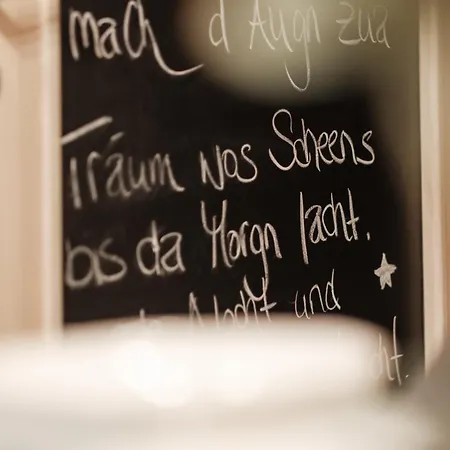 mach d Augn zua
Träum wos Scheens
bis da Morgn lacht.
Nacht und